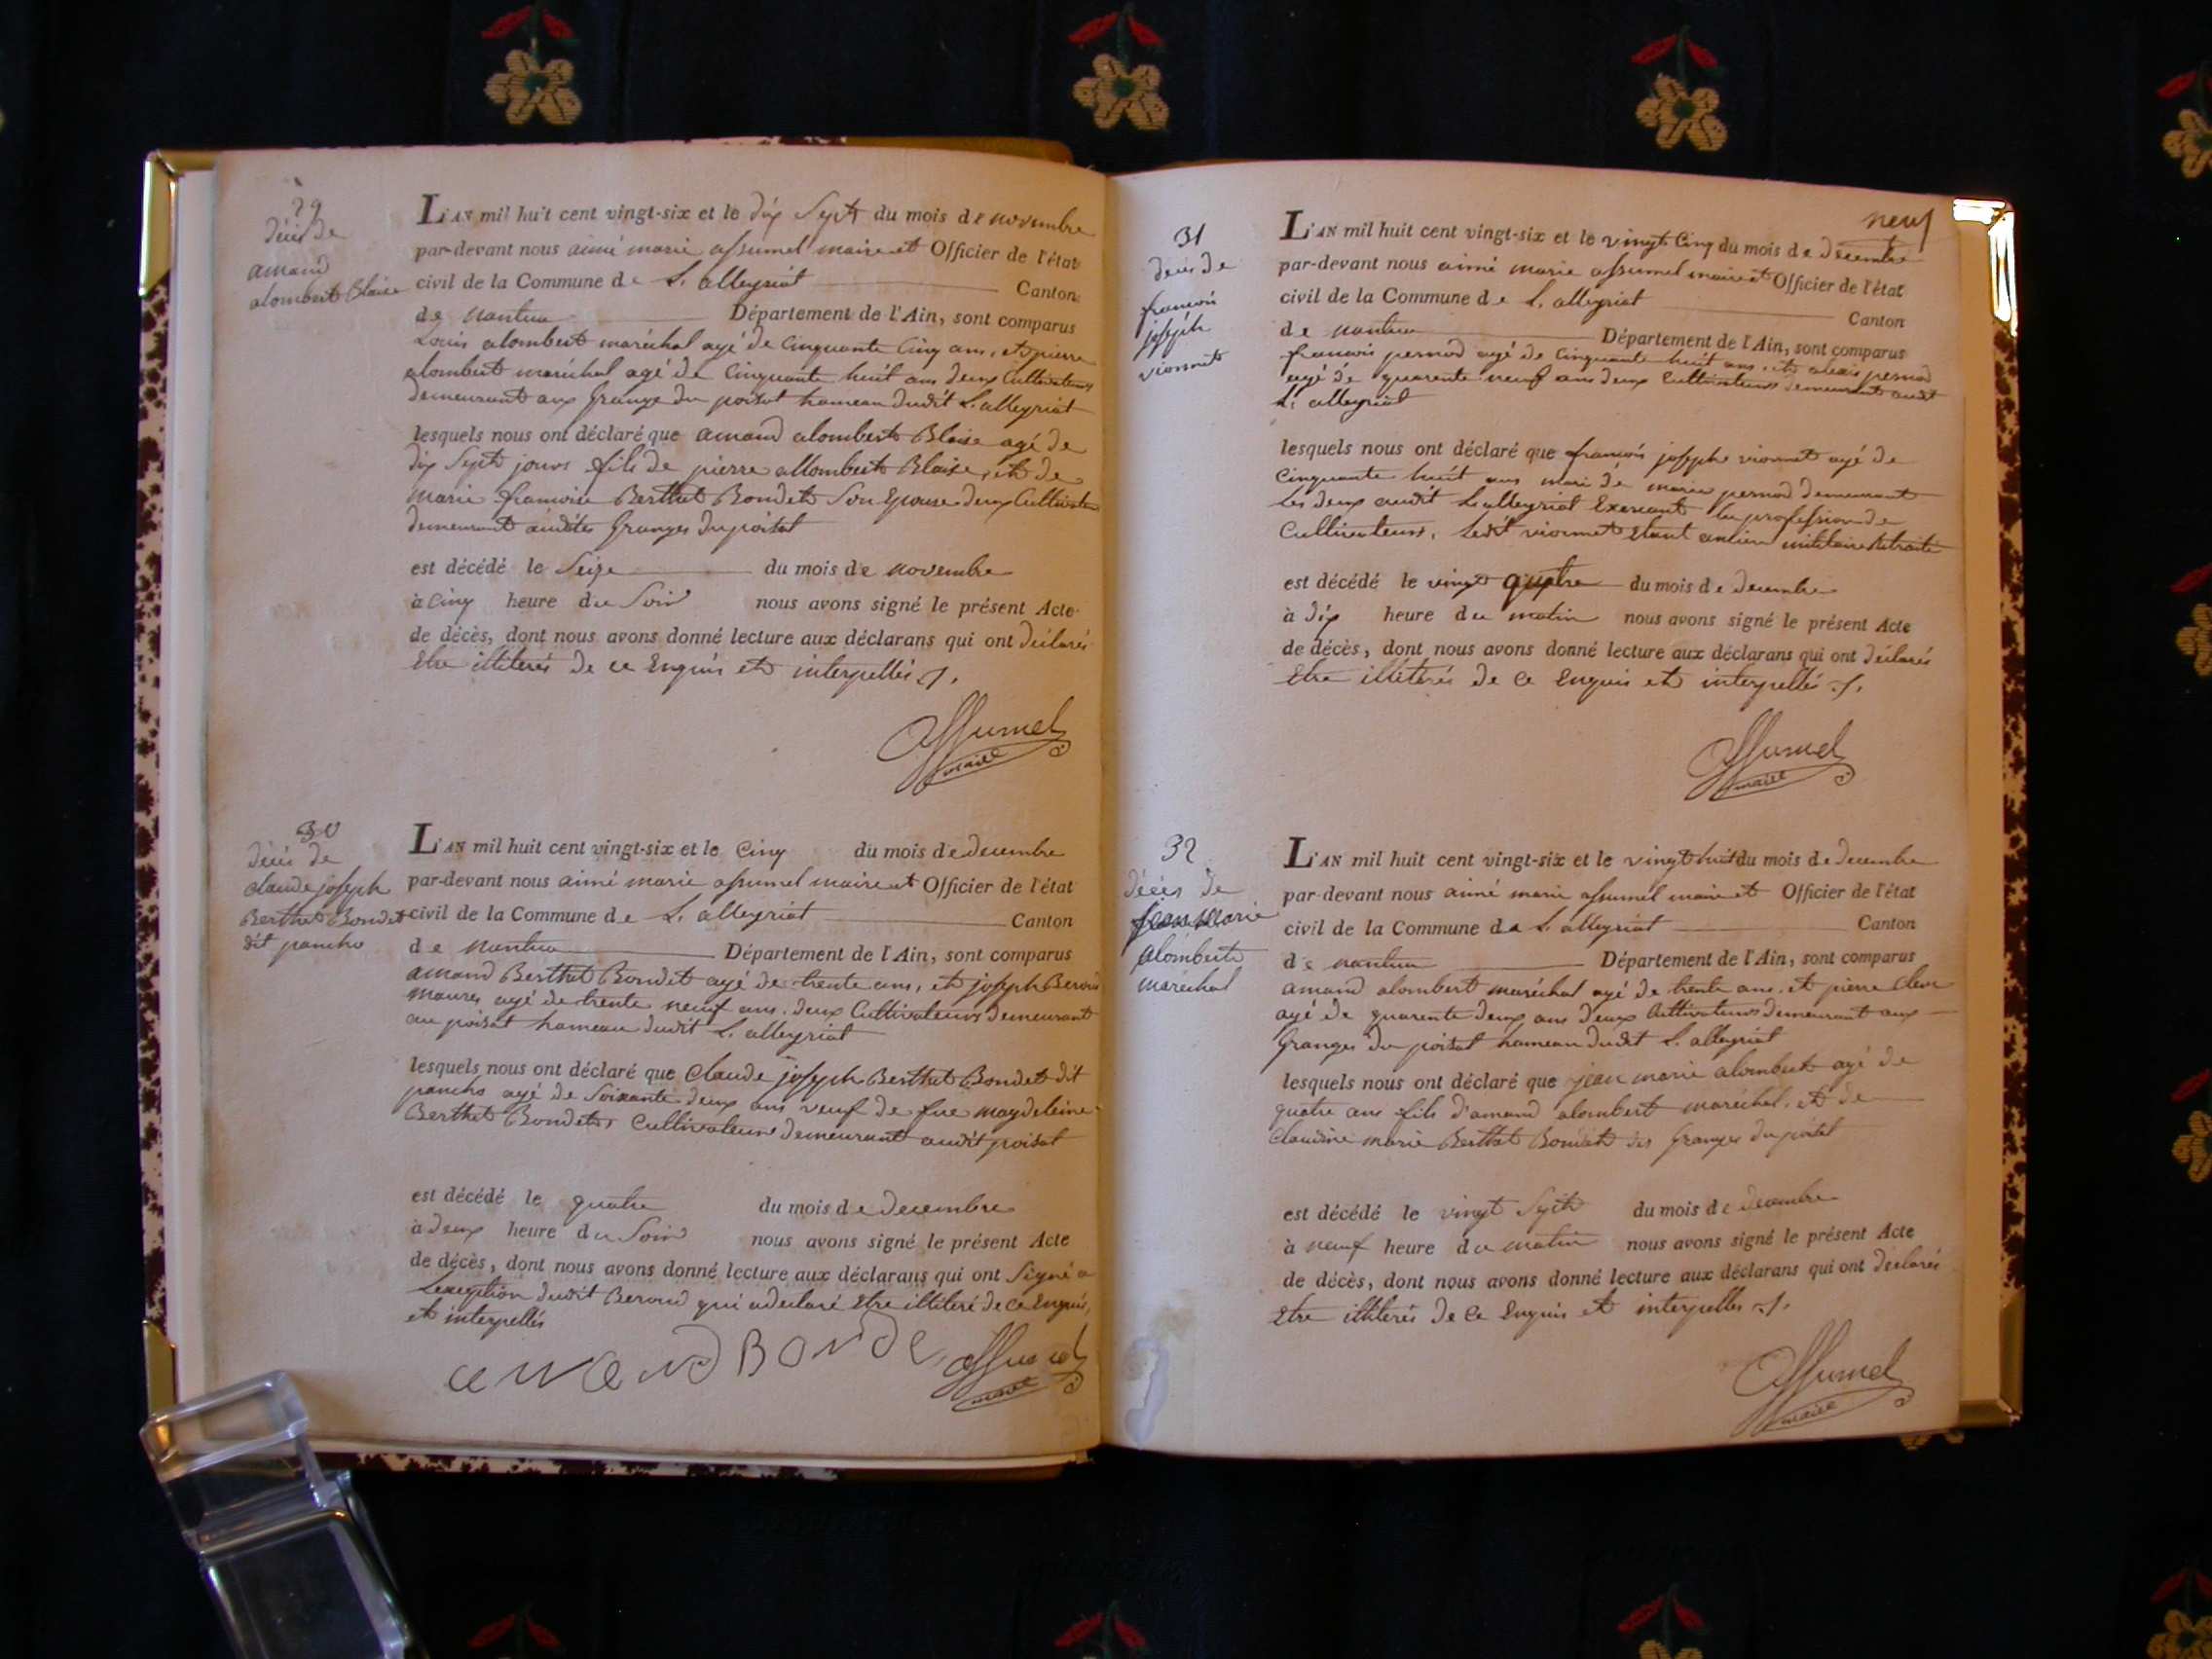 29
décès de
amand
alombert Blaise
L'AN mil huit cent vingt-six et le dix Sept du mois de novembre
par-devant nous aimé marie assumel maire et Officier de l'état
civil de la Commune de L. alleyriat Canton
de nantua Département de l'Ain, sont comparus
Louis alombert maréchal agé de Cinquante Cinq ans, et pierre
alombert maréchal agé de Cinquante huit ans deux Cultivateurs
demeurant aux Grange du poisat hameau dudit L. alleyriat
lesquels nous ont déclaré que amand alombert Blaise agé de
dix Sept jours fils de pierre allombert Blaise, et de
marie francoise Berthet Bondet Son Epouse deux Cultivateurs
demeurant audites Granges du poisat
est décédé le Seize du mois de novembre
à Cinq heure du Soir nous avons signé le présent Acte
de décès, dont nous avons donné lecture aux déclarans qui ont déclarés
Etre illiterés de ce Enquis et interpellés ./.
Assumel
maire
30
décès de
claude joseph
Berthet Bondet
dit pancho
L'AN mil huit cent vingt-six et le Cinq du mois de decembre
par-devant nous aimé marie assumel maire et Officier de l'état
civil de la Commune de L. alleyriat Canton
de nantua Département de l'Ain, sont comparus
amand Berthet Bondet agé de trente ans, et joseph Beroud
maures agé de trente neuf ans, deux Cultivateurs demeurant
au poisat hameau dudit L. alleyriat
lesquels nous ont déclaré que Claude joseph Berthet Bondet dit
pancho agé de Soixante deux ans veuf de fue magdeleine
Berthet Bondet, Cultivateur demeurant audit poisat
est décédé le quatre du mois de decembre
à deux heure du Soir nous avons signé le présent Acte
de décès, dont nous avons donné lecture aux déclarans qui ont Signé a
Lexeption dudit Beroud qui a declaré Etre illiteré de ce Enquis,
et interpellés
amand Bonde Assumel
maire
neuf
31
décès de
francois
joseph
vionnet
L'AN mil huit cent vingt-six et le vingt Cinq du mois de decembre
par-devant nous aimé marie assumel maire et Officier de l'état
civil de la Commune de L. alleyriat Canton
de nantua Département de l'Ain, sont comparus
francois pernod agé de Cinquante huit ans, et alexis pernod
agé de quarente neuf ans deux Cultivateurs demeurant audit
L. alleyriat
lesquels nous ont déclaré que francois joseph vionnet agé de
Cinquante huit ans mari de marie pernod demeurant
les deux audit L. alleyriat Exercant la profession de
Cultivateurs, Ledit vionnet Etant ancien militaire Retraité
est décédé le vingt quatre du mois de decembre
à dix heure du matin nous avons signé le présent Acte
de décès, dont nous avons donné lecture aux déclarans qui ont déclarés
Etre illiterés de ce Enquis et interpellés ./.
Assumel
maire
32
décès de
jean Marie
alombert
maréchal
L'AN mil huit cent vingt-six et le vingt huit du mois de decembre
par-devant nous aimé marie assumel maire et Officier de l'état
civil de la Commune de L. alleyriat Canton
de nantua Département de l'Ain, sont comparus
amand alombert maréchal agé de trente ans, et pierre
agé de quarente deux ans deux Cultivateurs demeurant aux
Granges du poisat hameau dudit L. alleyriat
lesquels nous ont déclaré que jean marie alombert agé de
quatre ans fils d'amand alombert maréchal, et de
Claudine marie Berthet Bondet des Granges du poisat
est décédé le vingt Sept du mois de decembre
à neuf heure du matin nous avons signé le présent Acte
de décès, dont nous avons donné lecture aux déclarans qui ont declarés
Etre illiterés de ce Enquis et interpellés ./.
Assumel
maire